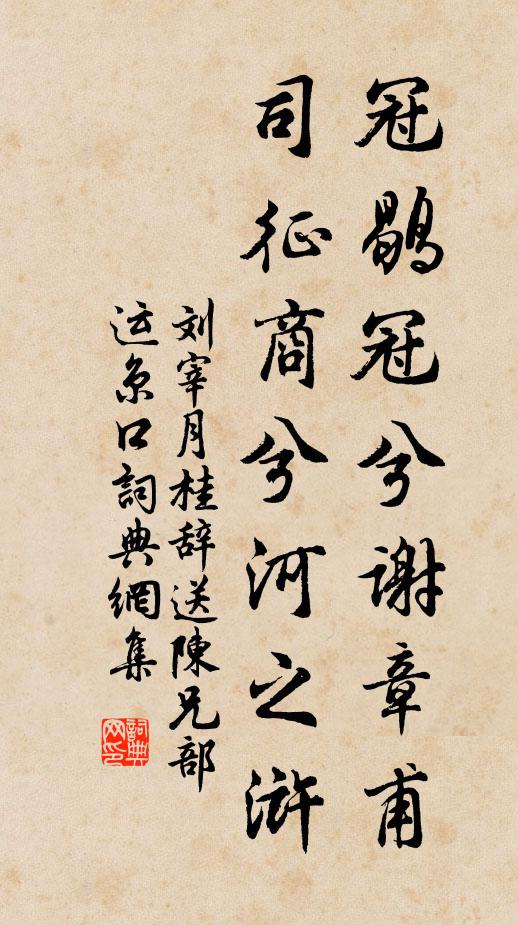 冠鶡冠兮谢章甫
司征商兮河之浒
刘宰月桂辞送陳兄部
运京口詞典網集
詞典网印